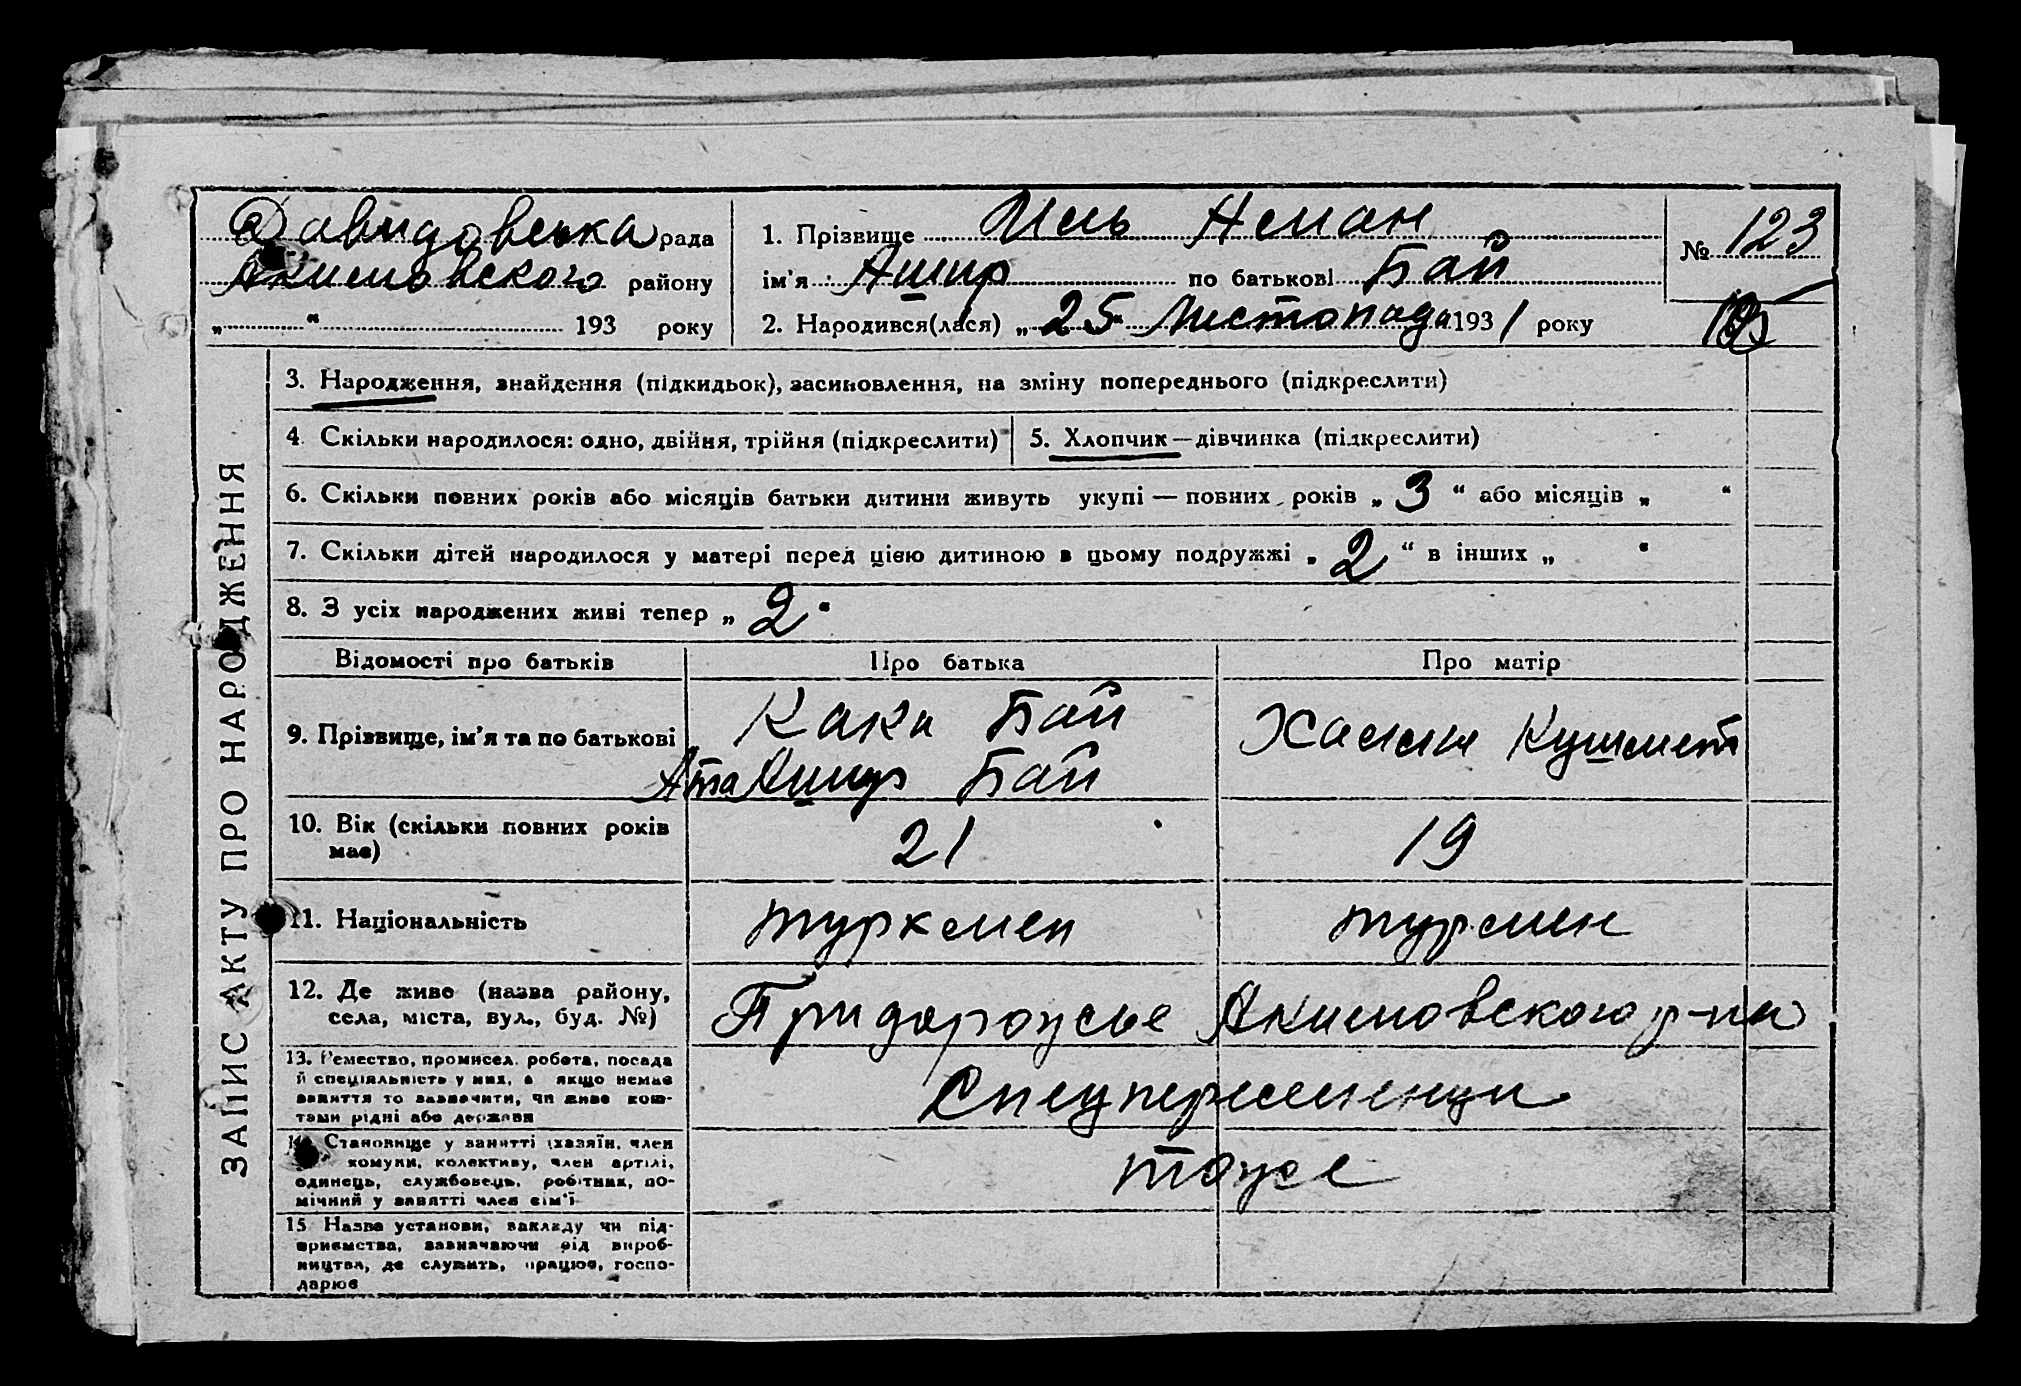 Давидовська рада
Акимовского району
„ “ 193 року
1. Прізвище Иль Аман
ім'я Ашир по батькові Бай
2. Народився(лася) „25“ Листопада 1931 року
№ 123
ЗАПИС АКТУ ПРО НАРОДЖЕННЯ
3. Народження, знайдення (підкидьок), засиновлення, на зміну попереднього (підкреслити)
4. Скільки народилося: одно, двійня, трійня (підкреслити)
5. Хлопчик—дівчинка (підкреслити)
6. Скільки повних років або місяців батьки дитини живуть укупі — повних років „3“ або місяців „ “
7. Скільки дітей народилося у матері перед цією дитиною в цьому подружжі „2“ в інших „ “
8. З усіх народжених живі тепер „2“
Відомості про батьків Про батька Про матір
9. Прізвище, ім'я та по батькові
Кака Бай
Ата Ашир Бай
Кушмет
10. Вік (скільки повних років
має)
21 19
11. Національність туркмен турмен
12. Де живе (назва району,
села, міста, вул., буд. №)
Придорожье Акимовского р-на
13. Ремество, промисел, робота, посада
й спеціяльність у них, а якщо немає
заняття то зазначити, чи живе кош-
тами рідні або держави
Спецпереселенци
14. Становище у занятті (хазяїн, член
комуни, колективу, член артілі,
одинець, службовець, робітник, по-
мічний у занятті член сім'ї
тоже
15 Назва установи, закладу чи під-
приємства, зазначаючи від вироб-
ництва, де служить, працює, госпо-
дарює